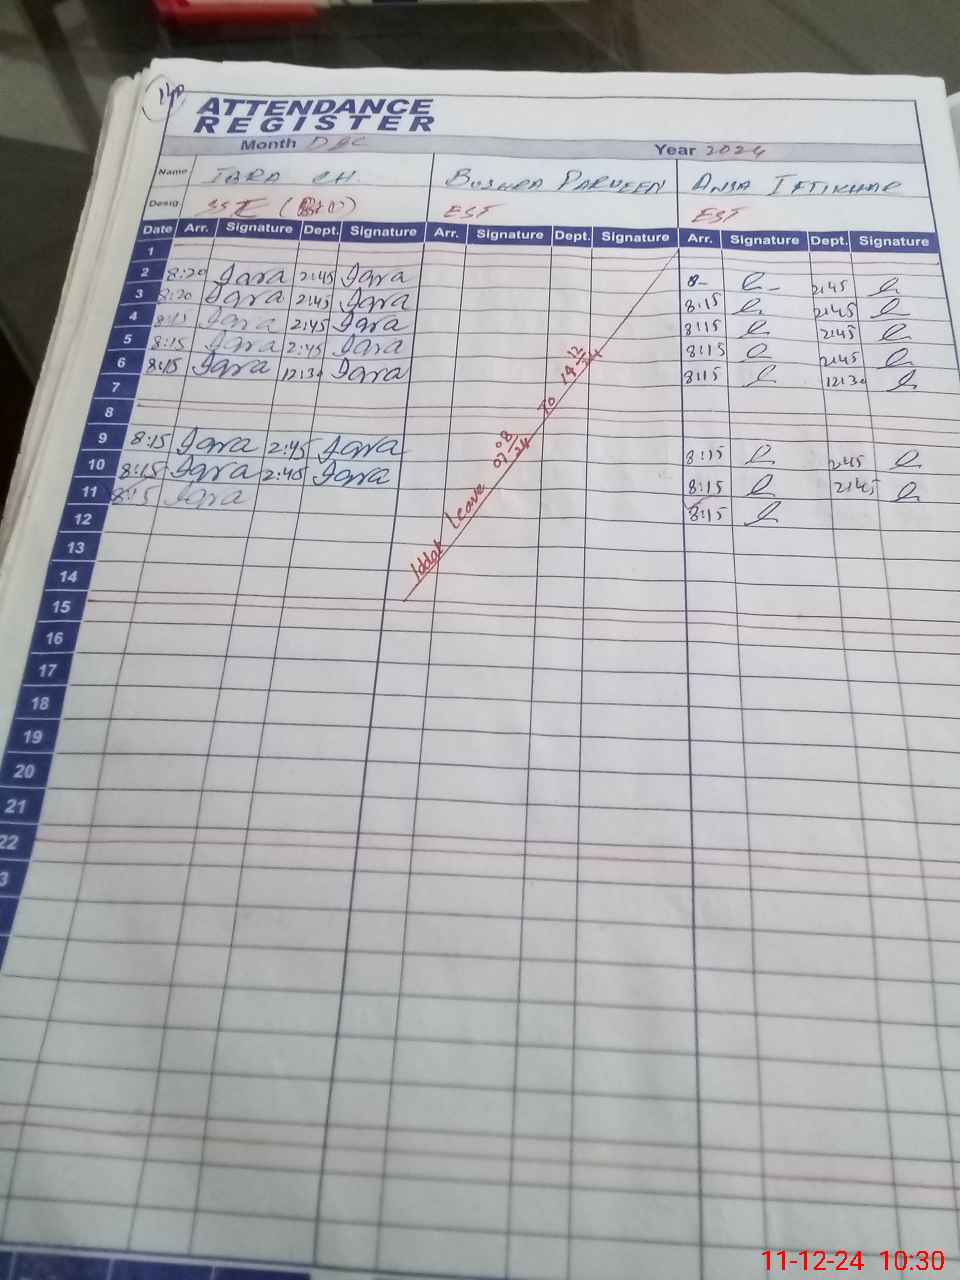 ATTENDANCE
REGISTER
Month DEC Year 2024
Name IQRA CH. BUSHRA PARVEEN ANSA IFTIKHAR
Desig. SSE EST EST
Date Arr. Signature Dept. Signature Arr. Signature Dept. Signature Arr. Signature Dept. Signature
1
2 8:20 Iqra 2:45 Iqra 8- 2:45
3 8:20 Iqra 2:45 Iqra 8:15 2:45
4 8:15 Iqra 2:45 Iqra 8:15 2:45
5 8:15 Iqra 2:45 Iqra 8:15 2:45
6 8:15 Iqra 12:30 Iqra 8:15 12:30
7
8
9 8:15 Iqra 2:45 Iqra 8:15 2:45
10 8:15 Iqra 2:45 Iqra 8:15 2:45
11 8:15 Iqra 8:15
Iddat Leave 07 08/24 To 14 12/24
12
13
14
15
16
17
18
19
20
21
22
3
11-12-24 10:30